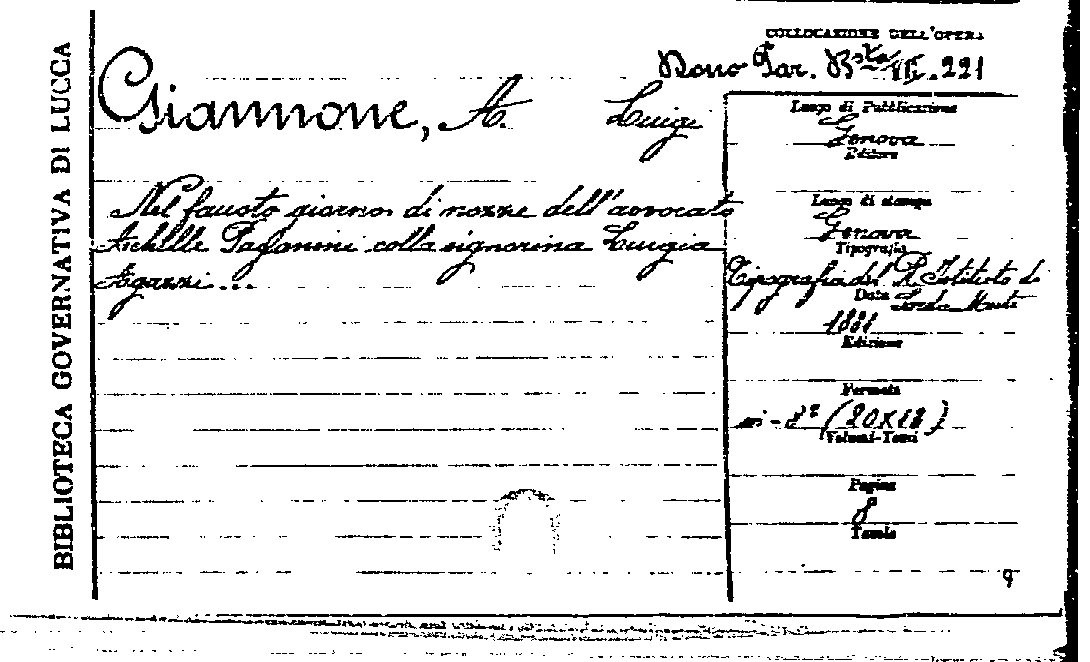 BIBLIOTECA GOVERNATIVA DI LUCCA
COLLOCAZIONE DELL'OPERA
Dono Par. Bsta VII.221
Giannone, A. Luigi
Nel fausto giorno di nozze dell'avvocato
Achille Paganini colla signorina Luigia
Agazzi...
Luogo di Pubblicazione
Genova
Editore
Luogo di stampa
Genova
Tipografia
Tipografia del R. Istituto
Data
1881
Edizione
Formato
in-8º (20x12)
Volumi-Tomi
Pagine
8
Tavole
9